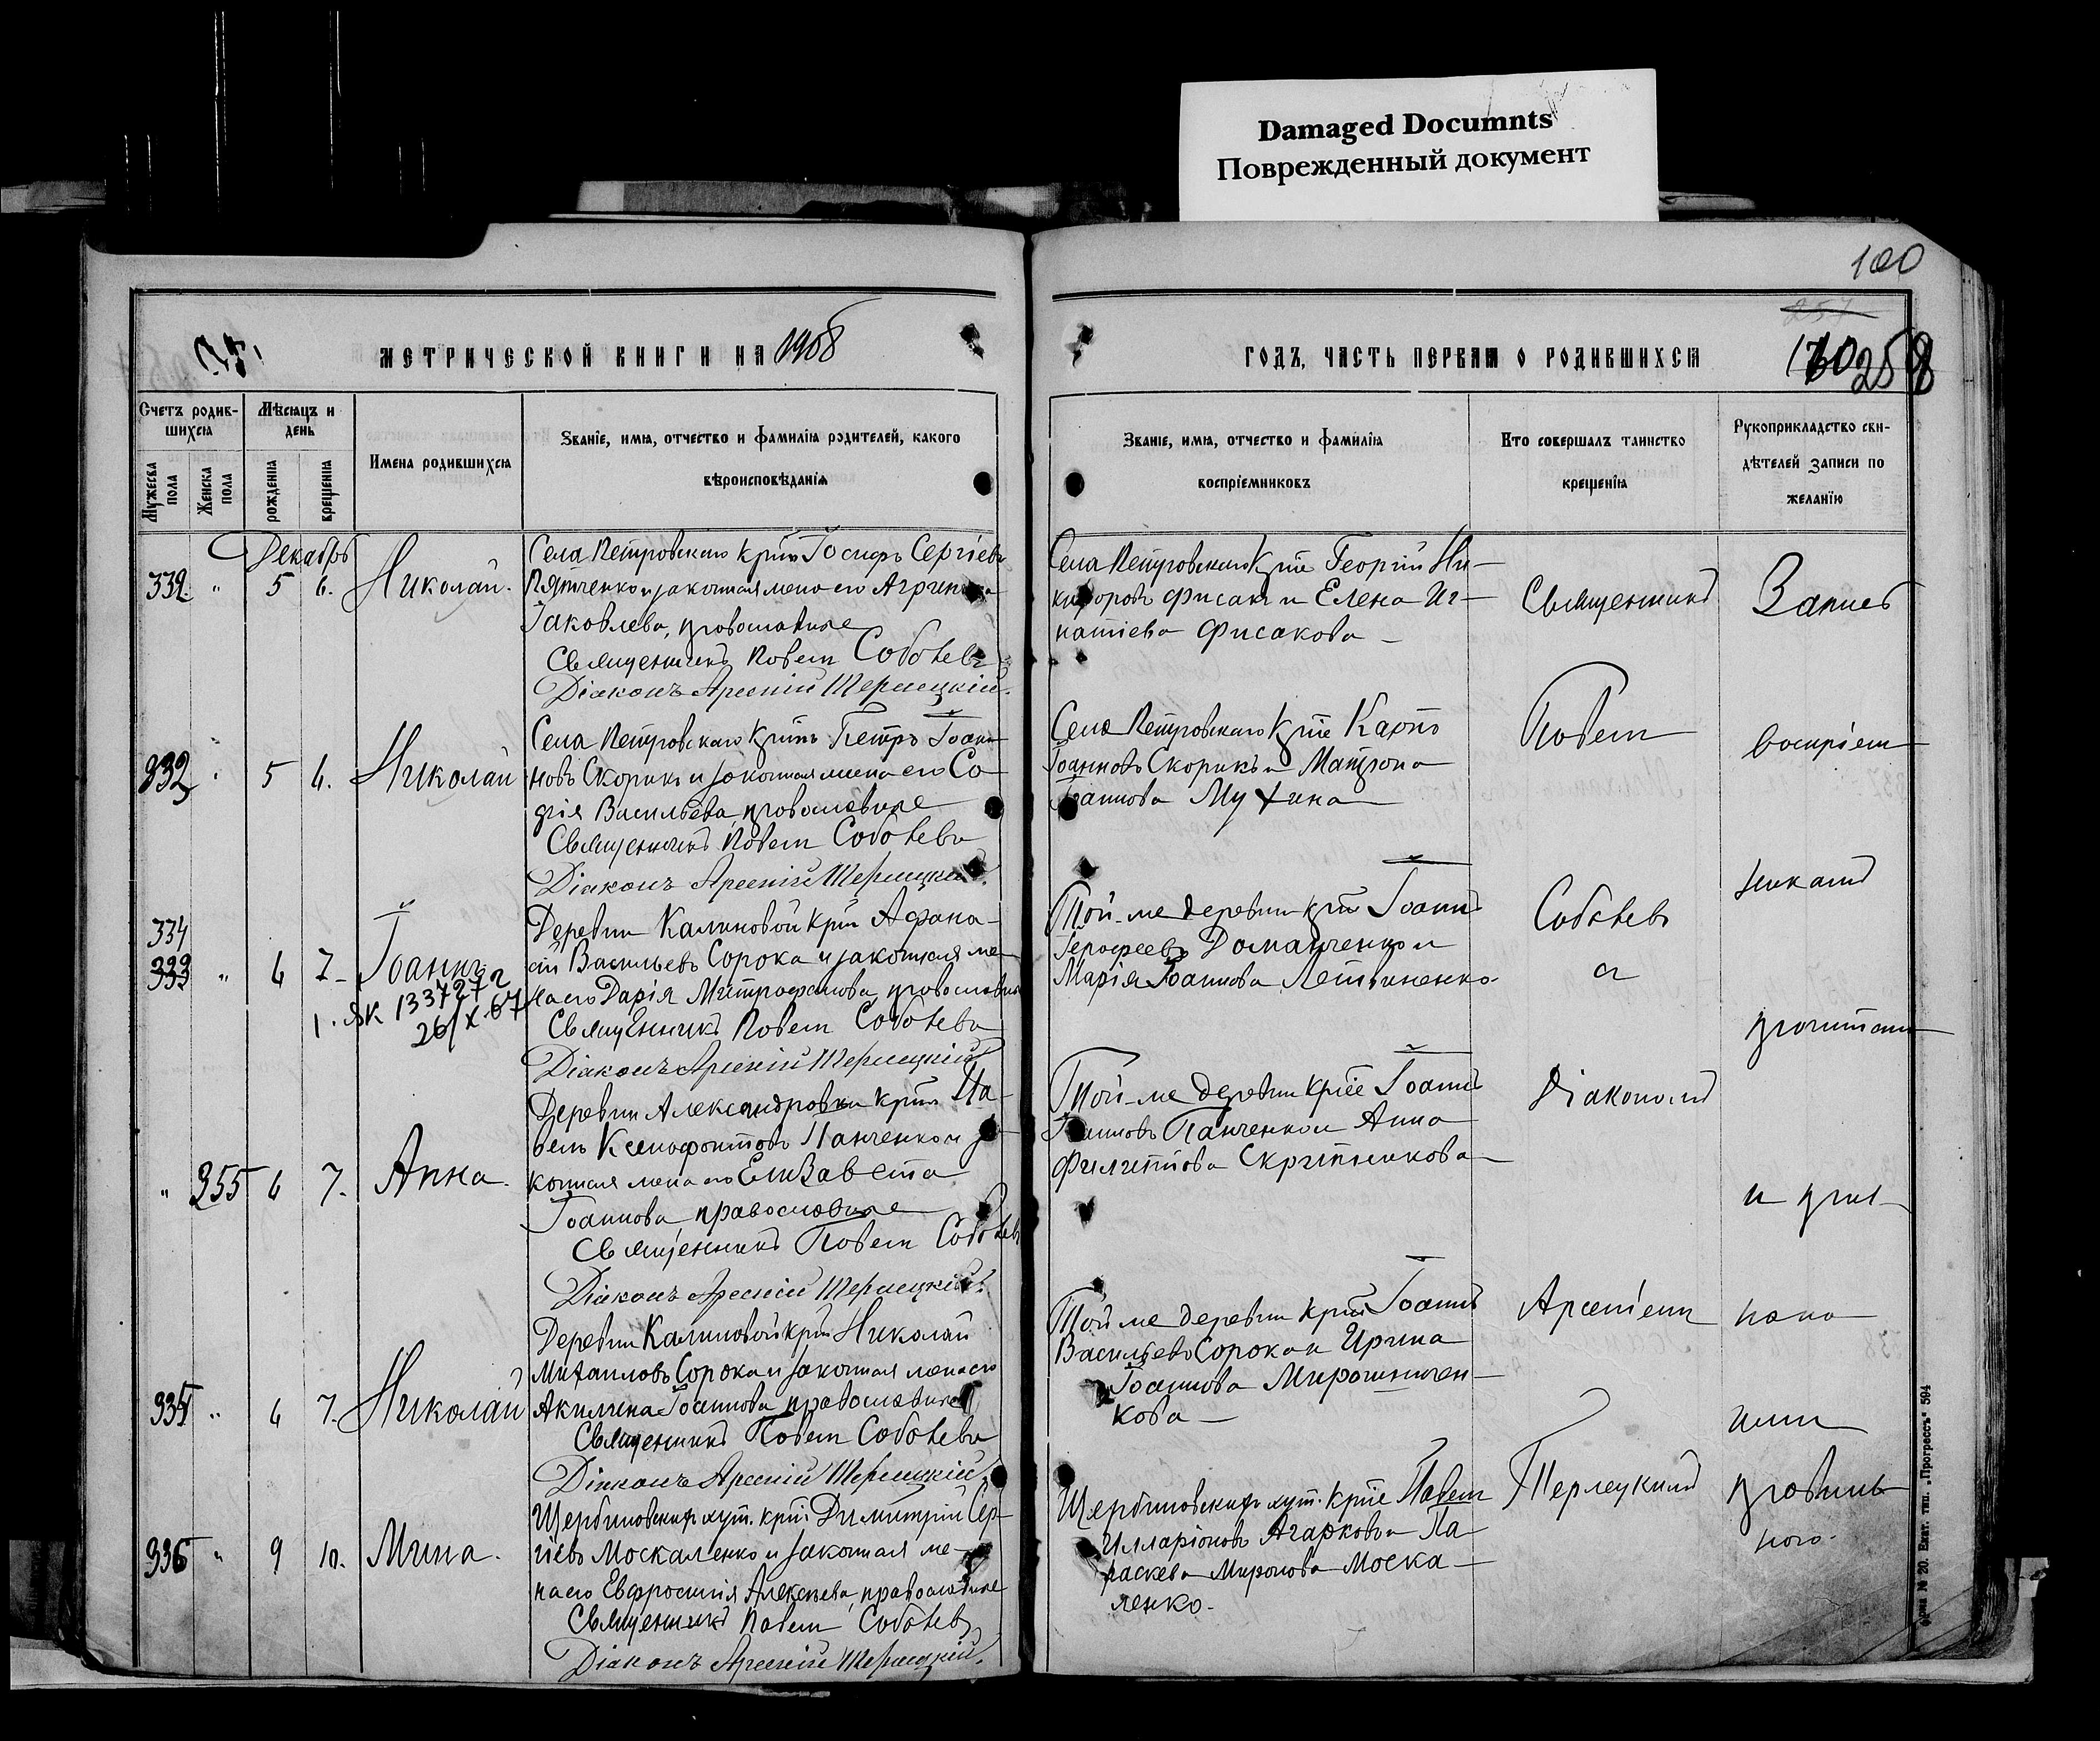 Damaged Documnts
Поврежденный документ
100
МЕТРИЧЕСКОЙ КНИГИ НА 1908
ГОДЪ, ЧАСТЬ ПЕРВАЯ О РОДИВШИХСЯ
258
Счетъ родив-
шихся
Мужеска пола
Женска пола
Мѣсяцъ и
день
рожденія
крещенія
Имена родившихся
Званіе, имя, отчество и фамилія родителей, какого
вѣроисповѣданія
Званіе, имя, отчество и фамилія
воспріемниковъ
Кто совершалъ таинство
крещенія
Рукоприкладство сви-
дѣтелей записи по
желанію
Декабрь
332 " 5 6. Николай.
Села Петровскаго крнъ Іосифъ Сергіевъ
Пятченко и законная жена его Агрипина
Іаковлева, православные
Священникъ Павелъ Соботевъ
Діаконъ Арсеній Терлецкій.
Села Петровскаго крне Георгій Ни-
кифоровъ Фисакъ и Елена Иг-
натіева Фисакова
5 6. Николай
Села Петровскаго крнъ Петръ Іоан-
новъ Скорикъ и законная жена его Со-
фія Васильева, православные
Священникъ Павелъ Соботевъ
Діаконъ Арсеній Терлецкій.
Села Петровскаго крне Карпъ
Іоанновъ Скорикъ и Матрона
Іоаннова Мухина
334
333 " 6 7. Іоаннъ
1. ЯК 133727 г
26/X-67
Деревни Калиновой крнъ Афана-
сій Васильевъ Сорока и законная же-
на его Дарія Митрофанова, православные
Священникъ Павелъ Соботевъ
Діаконъ Арсеній Терлецкій
Той-же деревни крне Іоаннъ
Іерофеевъ Доманченко и
Марія Іоаннова Летвиненко.
" 355 6 7. Анна.
Деревни Александровки крнъ Па-
велъ Ксенофонтовъ Панченко и за-
конная жена его Елизавета
Іоаннова, православные
Священникъ Павелъ Соботевъ
Діаконъ Арсеній Терлецкій.
Той-же деревни крне Іоаннъ
Іоанновъ Панченко и Анна
Филиппова Скрипникова
" 6 7. Николай
Деревни Калиновой крнъ Николай
Михаиловъ Сорока и законная жена его
Акилина Іоаннова, православные
Священникъ Павелъ Соботевъ
Діаконъ Арсеній Терлецкій
Той же деревни крне Іоаннъ
Васильевъ Сорока и Ирина
Іоаннова Мирошничен-
кова
336 " 9 10. Мина.
Щербиновскихъ хут. крнъ Димитрій Сер-
гіевъ Москаленко и законная же-
на его Евфросинія Алексѣева, православные
Священникъ Павелъ Соботевъ
Діаконъ Арсеній Терлецкій.
Щербиновскихъ хут. крне Павелъ
Илларіоновъ Агарковъ и Па-
раскева Миронова Моска-
ленко.
Священникъ
Павелъ
Соботевъ
съ
Діакономъ
Арсеніемъ
Терлецкимъ
Запись
воспріем-
никамъ
прочитана
и приз-
нана
ими
правиль-
ного.
№ 20. Екат. тип. „Прогрессъ“ 594